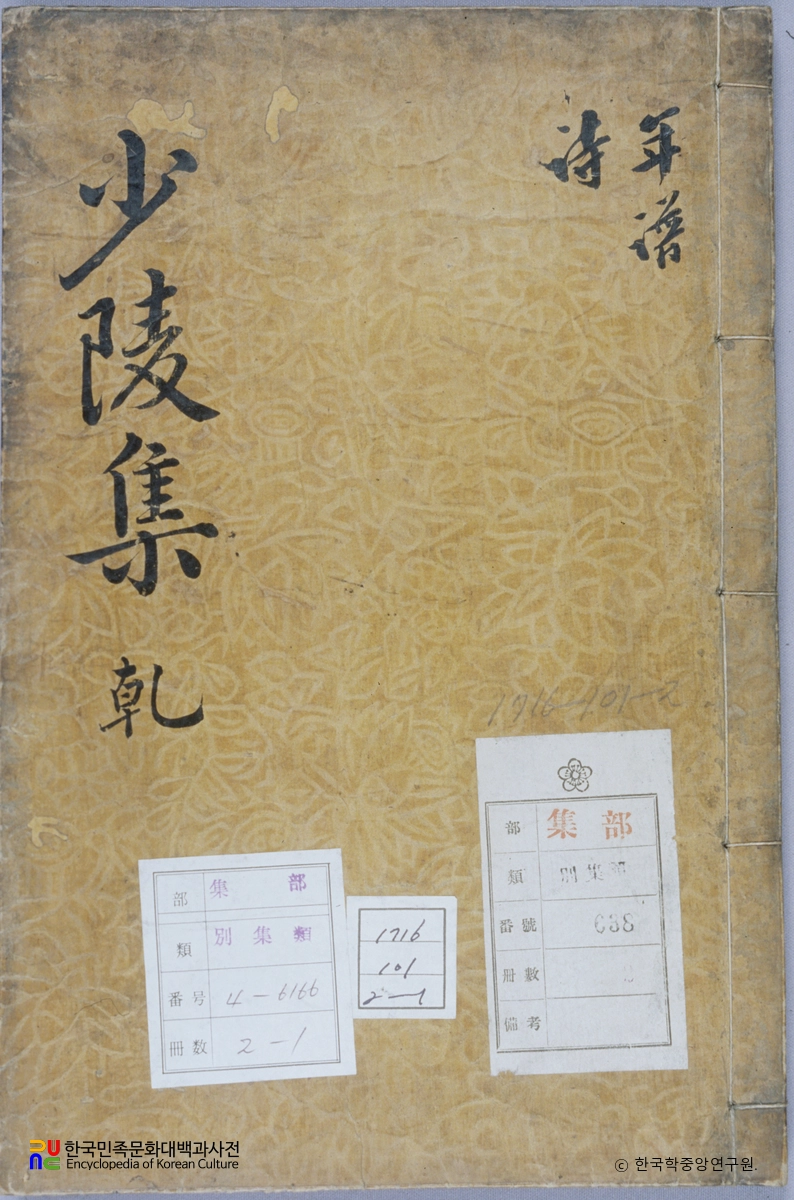 年譜
詩
少陵集 乾
1716-101-2
部 集部
類 別集類
番號 638
冊數
備考
部 集部
類 別集類
番号 4-6166
冊数 2-1
1716
101
2-1
한국민족문화대백과사전
Encyclopedia of Korean Culture
ⓒ 한국학중앙연구원.